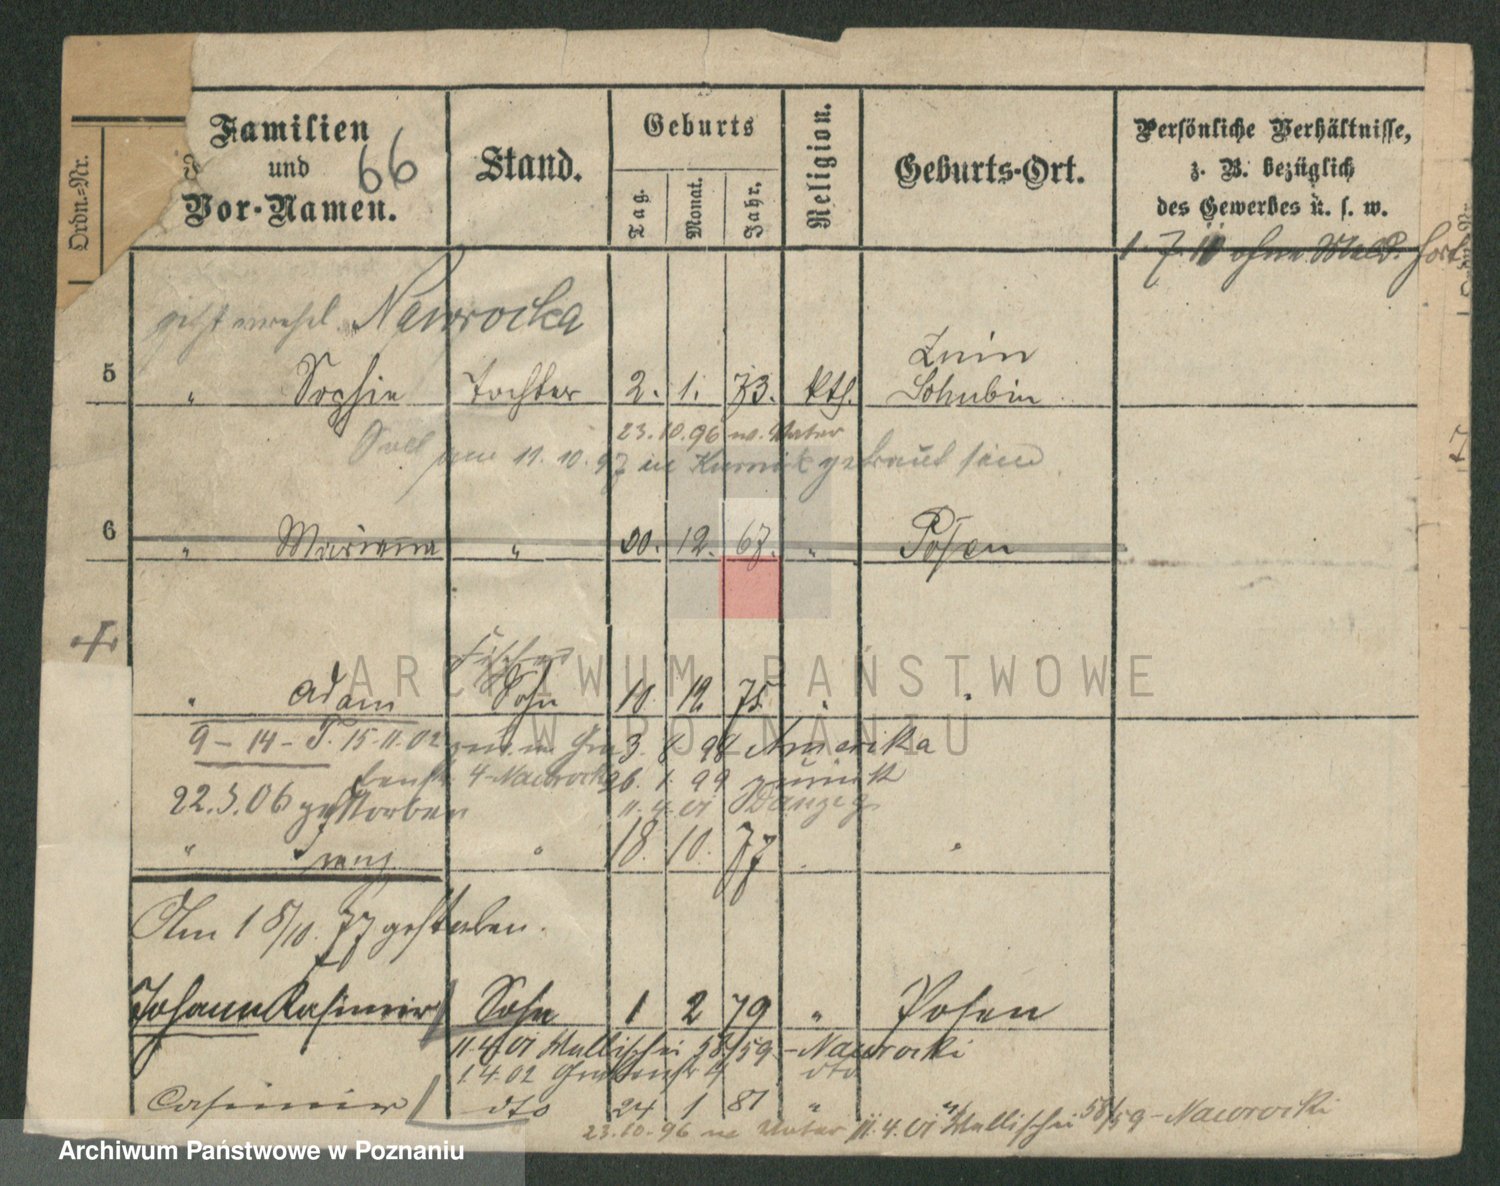 Ordn.-Nr.
Familien
und
Vor-Namen.
66
Stand.
Geburts
Tag.
Monat.
Jahr.
Religion.
Geburts-Ort.
Persönliche Verhältnisse,
z. B. bezüglich
des Gewerbes u. s. w.
1. 7. 11 ohne Meld. fort
Nawrocka
Znin
5 " Sophie Tochter 2. 1. 73. kth. Schubin
23.10.96 w. Unter
Soll 11.10.97 in Kurnik getraut sein
6 " Marianna " 12. 67. " Posen
Fischer
" Adam Sohn 10 12. 75. "
9-14-T. 15.11.02 3. 8 98 Amerika
4-Nawrocki 26. 1. 99 zurück
22.3.06 gestorben 11.4.01 Danzig
" Franz " 18. 10. 77 "
Am 18/10. 77 gestorben.
Johann Kasimir Sohn 1 2 79 " Posen
11.4.01 Wallischei 58/59-Nawrocki
1.4.02 dto
Casimir dto 24 1 81 "
23.10.96 w Unter 11.4.01 Wallischei 58/59-Nawrocki
ARCHIWUM PAŃSTWOWE
W POZNANIU
Archiwum Państwowe w Poznaniu